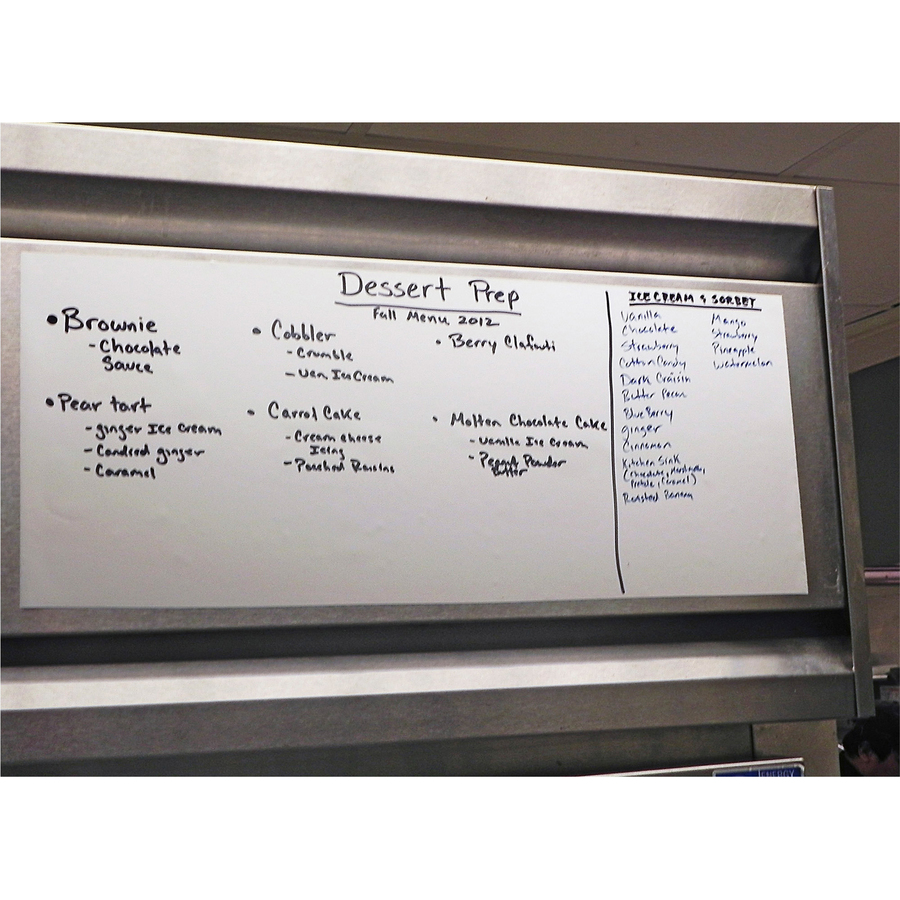 Dessert Prep
Fall Menu 2012
• Brownie
- Chocolate
Sauce
• Pear tart
- ginger Ice Cream
- Candied ginger
- Caramel
• Cobbler
- Crumble
- Van Ice Cream
• Carrot Cake
- Cream cheese
Icing
- Poached Raisins
• Berry Clafouti
• Molten Chocolate Cake
- Vanilla Ice Cream
- Peanut Powder
Butter
ICE CREAM & SORBET
Vanilla
Chocolate
Strawberry
Cotton Candy
Dark
Butter Pecan
Blue Berry
ginger
Cinnamon
Kitchen Sink
(Chocolate,
Caramel)
Roasted Banana
Mango
Strawberry
Pineapple
Watermelon
ENERGY